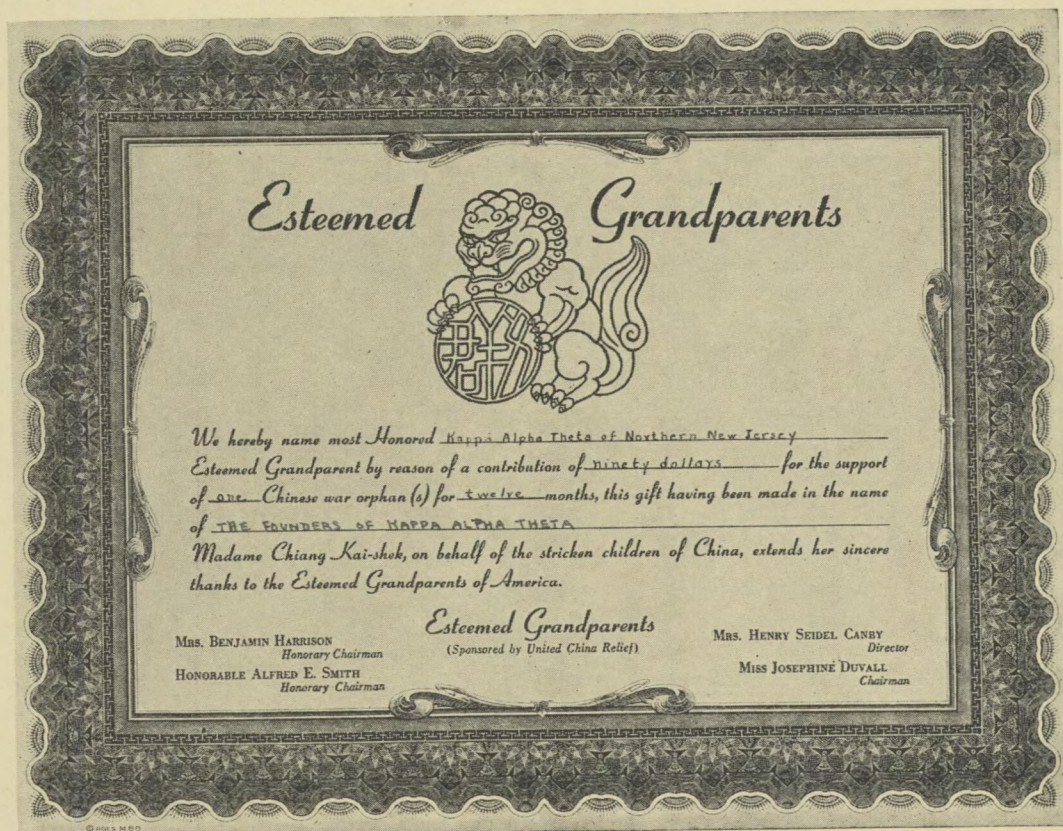 Esteemed Grandparents
We hereby name most Honored Kappa Alpha Theta of Northern New Jersey
Esteemed Grandparent by reason of a contribution of ninety dollars for the support
of one Chinese war orphan (s) for twelve months, this gift having been made in the name
of THE FOUNDERS OF KAPPA ALPHA THETA
Madame Chiang Kai-shek, on behalf of the stricken children of China, extends her sincere
thanks to the Esteemed Grandparents of America.
Esteemed Grandparents
(Sponsored by United China Relief)
MRS. BENJAMIN HARRISON
Honorary Chairman
HONORABLE ALFRED E. SMITH
Honorary Chairman
MRS. HENRY SEIDEL CANBY
Director
MISS JOSEPHINE DUVALL
Chairman